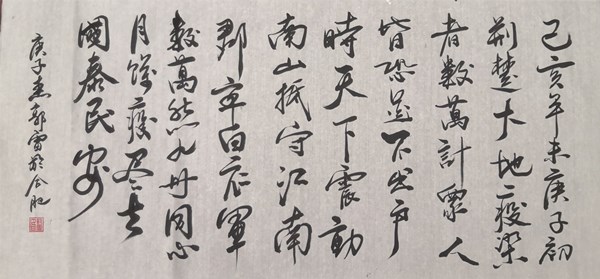 己亥年末庚子初
荆楚大地疫染
者数萬計眾人
皆恐足不出户
時天下震動
南山抵守江南
郡率白衣軍
数萬然九州同心
月馀疫尽去
國泰民安
庚子春郭雷於合肥